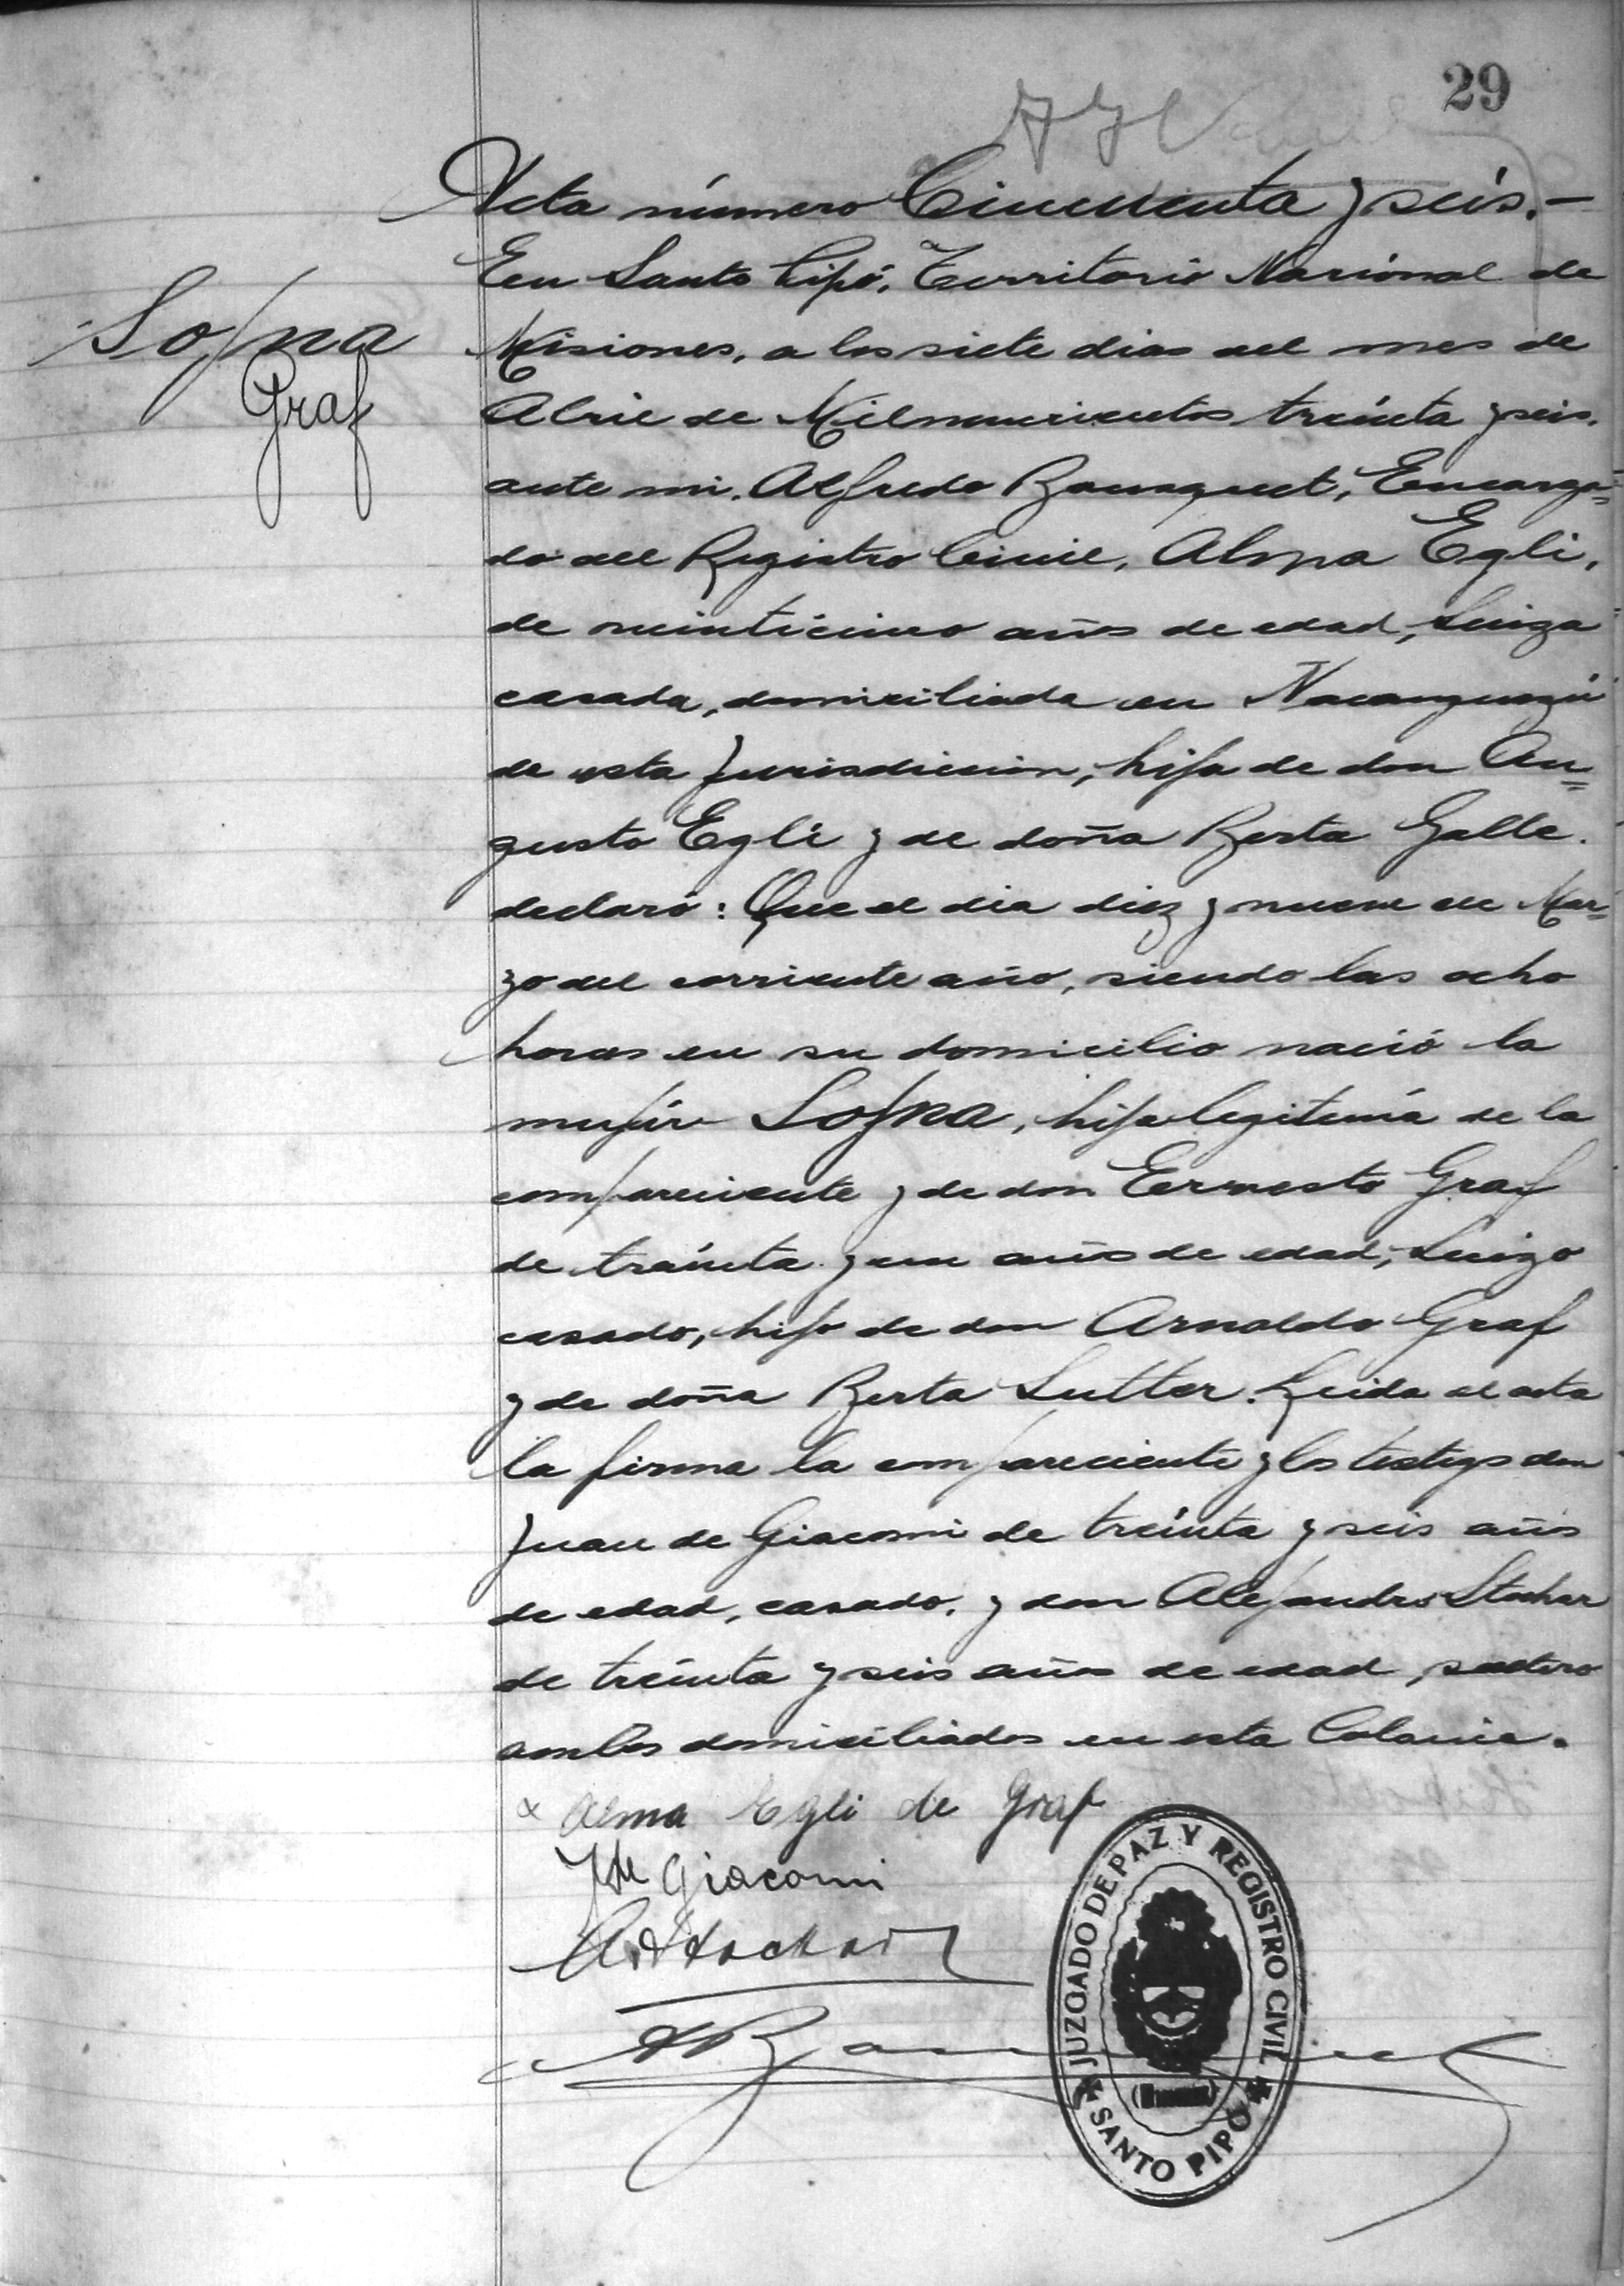 29
Acta número Cincuenta y seis.-
En Santo Pipó, Territorio Nacional de
Sofna
Graf
Misiones, a los siete dias del mes de
Abril de Mil novecientos treinta y seis,
ante mi, Alfredo Bousquet, Encarga=
do del Registro Civil, Alma Egli,
de veinticinco años de edad, Suiza
casada, domiciliada en Ñacanguazú
de esta Jurisdiccion, hija de don Au=
gusto Egli y de doña Berta Galle.
declaró: Que el dia diez y nueve de Mar=
zo del corriente año, siendo las ocho
horas en su domicilio nació la
mujér Sofna, hija legitima de la
compareciente y de don Ernesto Graf
de tréinta y un años de edad, Suizo
casado, hijo de don Arnoldo Graf
y de doña Berta Sutter. Leida el acta
la firma la compareciente y los testigos don
Juan de Giacomi de treinta y seis años
de edad, casado, y don Alejandro Stachar
de treinta y seis años de edad, soltero
ambos domiciliados en esta Colonia.
x Alma Egli de Graf
J de Giacomi
A. Stachar
JUZGADO DE PAZ Y REGISTRO CIVIL
SANTO PIPÓ